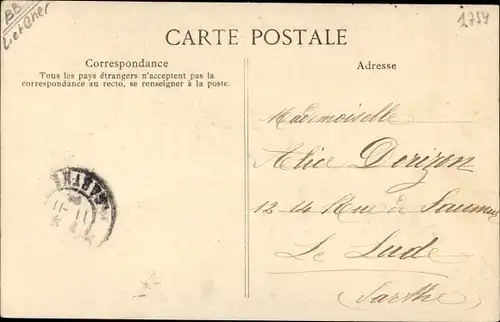 BB
Let Cher
1754
CARTE POSTALE
Correspondance
Tous les pays étrangers n'acceptent pas la
correspondance au recto, se renseigner à la poste.
Adresse
Mademoiselle
Alice Dorizon
12 14 Rue de Saumur
Le Lude
Sarthe
SARTHE
11 - 11